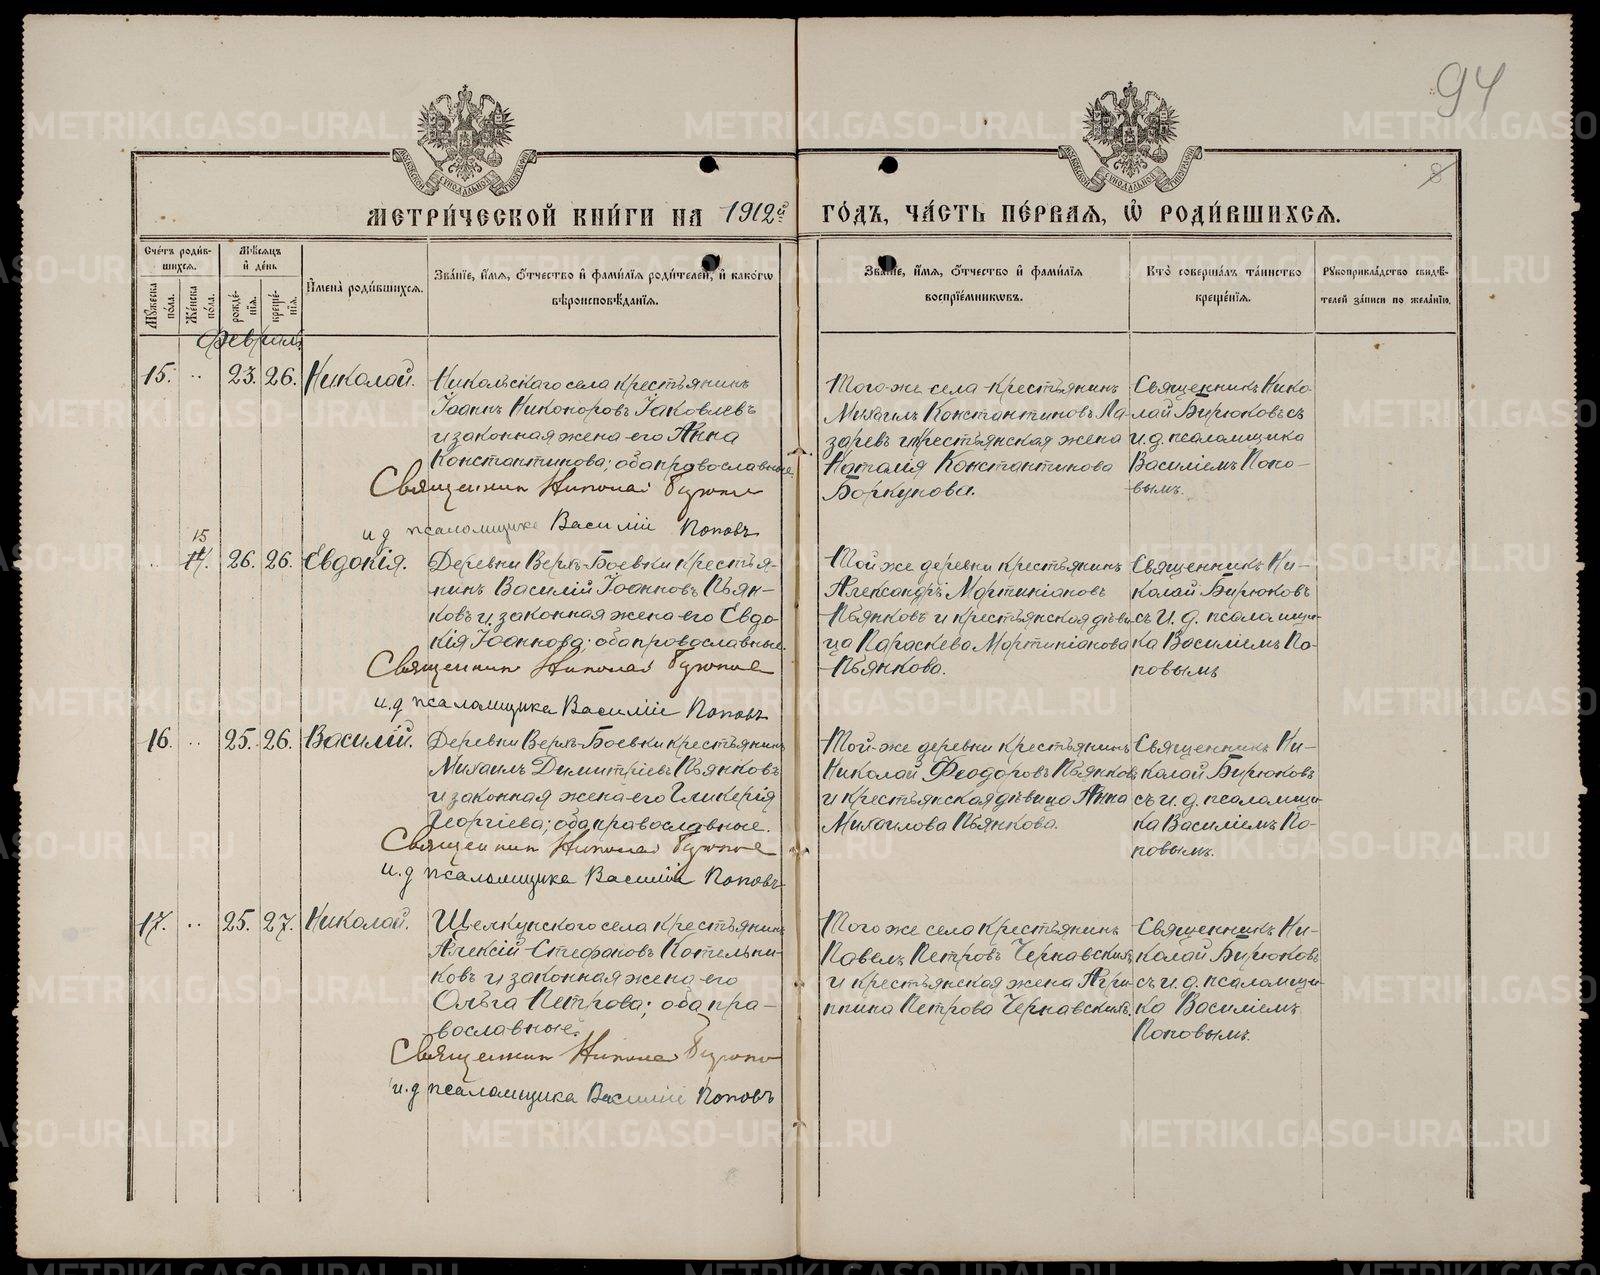 94
8
МОСКОВСКОЙ СѴНОДАЛЬНОЙ ТИПОГРАФІИ
МОСКОВСКОЙ СѴНОДАЛЬНОЙ ТИПОГРАФІИ
МЕТРИ́ЧЕСКОЙ КНИ́ГИ НА 1912й ГО́ДЪ, ЧА́СТЬ ПЕ́РВАЯ, Ѿ РОДИ́ВШИХСЯ.
Сче́тъ роди́вшихся.
Мꙋ́жеска по́ла.
Же́нска по́ла.
Мѣ́сяцъ и҆ де́нь
рожде́нїя.
креще́нїя.
И҆мена̀ роди́вшихся.
Зва́нїе, и҆́мя, о҆́тчество и҆ фами́лїя роди́телей, и҆ како́гѡ
вѣроисповѣ́данїя.
Зва́нїе, и҆́мя, о҆́тчество и҆ фами́лїя
воспрїе́мникѡвъ.
Кто̀ соверша́лъ та́инство
креще́нїя.
Рꙋкоприкла́дство свидѣ́-
телей за́писи по жела́нїю.
Февраль
15. .. 23. 26. Николай.
Никольскаго села крестьянинъ
Іоаннъ Никоноровъ Іаковлевъ
и законная жена его Анна
Константинова; оба православные.
Священник Николай Бирюков
и д псаломщика Василій Поповъ
Того-же села крестьянинъ
Михаилъ Константиновъ Ла-
заревъ и крестьянская жена
Наталія Константинова
Боркунова.
Священникъ Нико
лай Бирюковъ съ
и. д. псаломщика
Василіемъ Попо-
вымъ.
15
.. 14. 26. 26. Евдокія.
Деревни Верхъ-Боевки крестья-
нинъ Василій Іоанновъ Пьян-
ковъ и законная жена его Евдо-
кія Іоаннова; оба православные.
Священник Николай Бирюков
и.д псаломщика Василій Поповъ
Той же деревни крестьянинъ
Александръ Мартиніановъ
Пьянковъ и крестьянская дѣви-
ца Параскева Мартиніанова
Пьянкова.
Священникъ Ни-
колай Бирюковъ
съ и. д. псаломщи-
ка Василіемъ По-
повымъ
16. .. 25. 26. Василій.
Деревни Верхъ-Боевки крестьянинъ
Михаилъ Димитріевъ Пьянковъ
и законная жена его Гликерія
Георгіева; оба православные.
Священник Николай Бирюков
и.д псаломщика Василій Поповъ
Той-же деревни крестьянинъ
Николай Феодоровъ Пьянковъ
и крестьянская дѣвица Анна
Михаилова Пьянкова.
Священникъ Ни-
колай Бирюковъ
съ и. д. псаломщи-
ка Василіемъ По-
повымъ.
17. .. 25. 27. Николай.
Щелкунскаго села крестьянинъ
Алексій Стефановъ Котельни-
ковъ и законная жена его
Ольга Петрова; оба пра-
вославные.
Священник Николай Бирюков
и.д псаломщика Василій Поповъ
Того же села крестьянинъ
Павелъ Петровъ Чернавскихъ
и крестьянская жена Агри-
пина Петрова Чернавскихъ.
Священникъ Ни-
колай Бирюковъ
съ и. д. псаломщи-
ка Василіемъ
Поповымъ.
METRIKI.GASO-URAL.RU